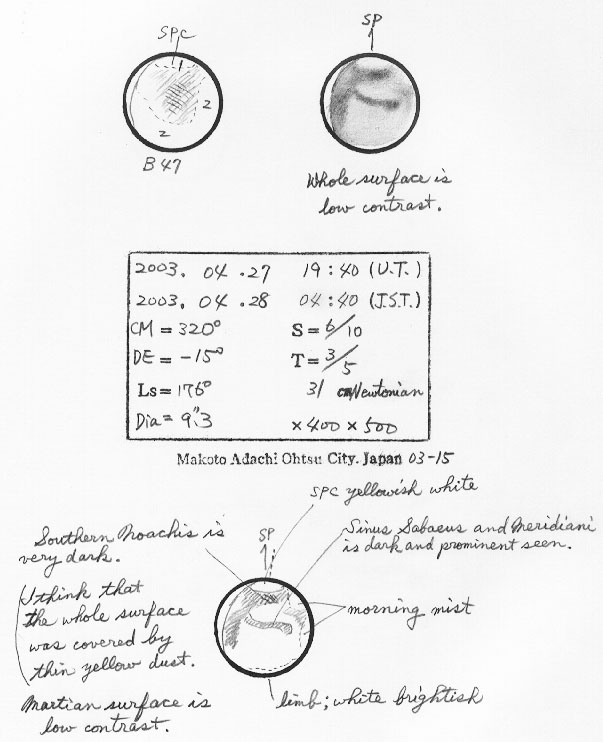 SPC
2
2
B 47
SP
Whole surface is
low contrast.
2003. 04 .27 19:40 (U.T.)
2003. 04 .28 04:40 (J.S.T.)
CM = 320° S = 6/10
DE = -15° T = 3/5
Ls = 176° 31 cm Newtonian
Dia = 9".3 ×400 ×500
Makoto Adachi Ohtsu City. Japan 03-15
SPC yellowish white
Southern Noachis is
very dark.
SP
Sinus Sabaeus and Meridiani
is dark and prominent seen.
I think that
the whole surface
was covered by
thin yellow dust.
morning mist
Martian surface is
low contrast.
limb; white brightish